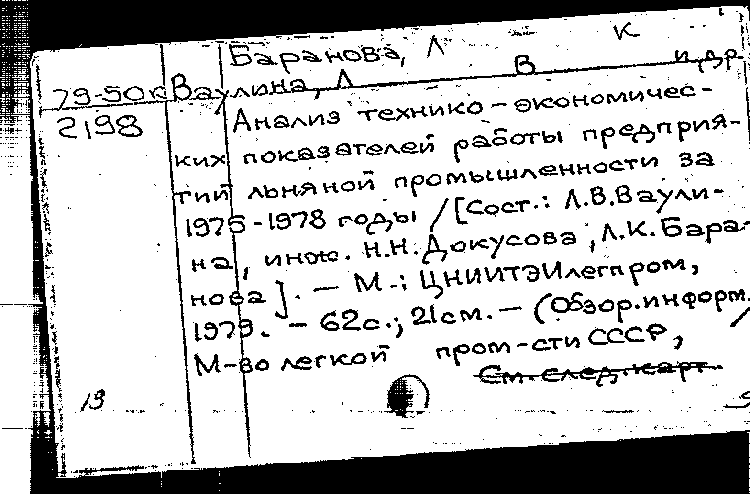 Баранова, Л К
79-50к Ваулина, Л В и др
2198 Анализ технико-экономичес-
ких показателей работы предприя-
тий льняной промышленности за
1976-1978 годы /[Сост.: Л.В.Ваули-
на, инж. Н.Н.Докусова, Л.К.Бара-
нова]. — М.: ЦНИИТЭИлегпром,
1979. — 62с.; 21см. — (Обзор.информ./
М-во легкой пром-сти СССР,
См. след. карт.
13